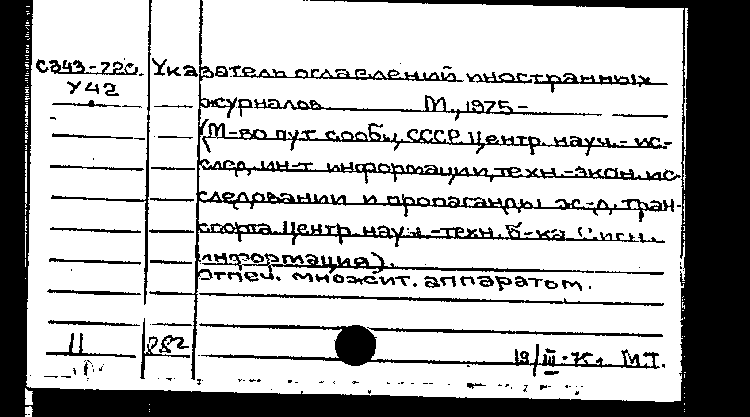 С343-720. Указатель оглавлений иностранных
У42
журналов М., 1975-
(М-во пут. сообщ. СССР. Центр. науч.- ис-
след. ин-т информации, техн.-экон. ис-
следований и пропаганды ж.-д. тран-
спорта. Центр. науч.-техн. б-ка. Сигн.
информация).
отпеч. множит. аппаратом.
II 882 19/III-75г. М.Т.